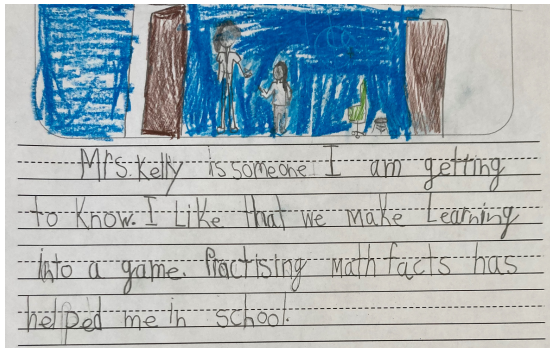 Mrs. Kelly is someone I am getting
to know. I Like that we make Learning
into a game. Practising math facts has
helped me in school.